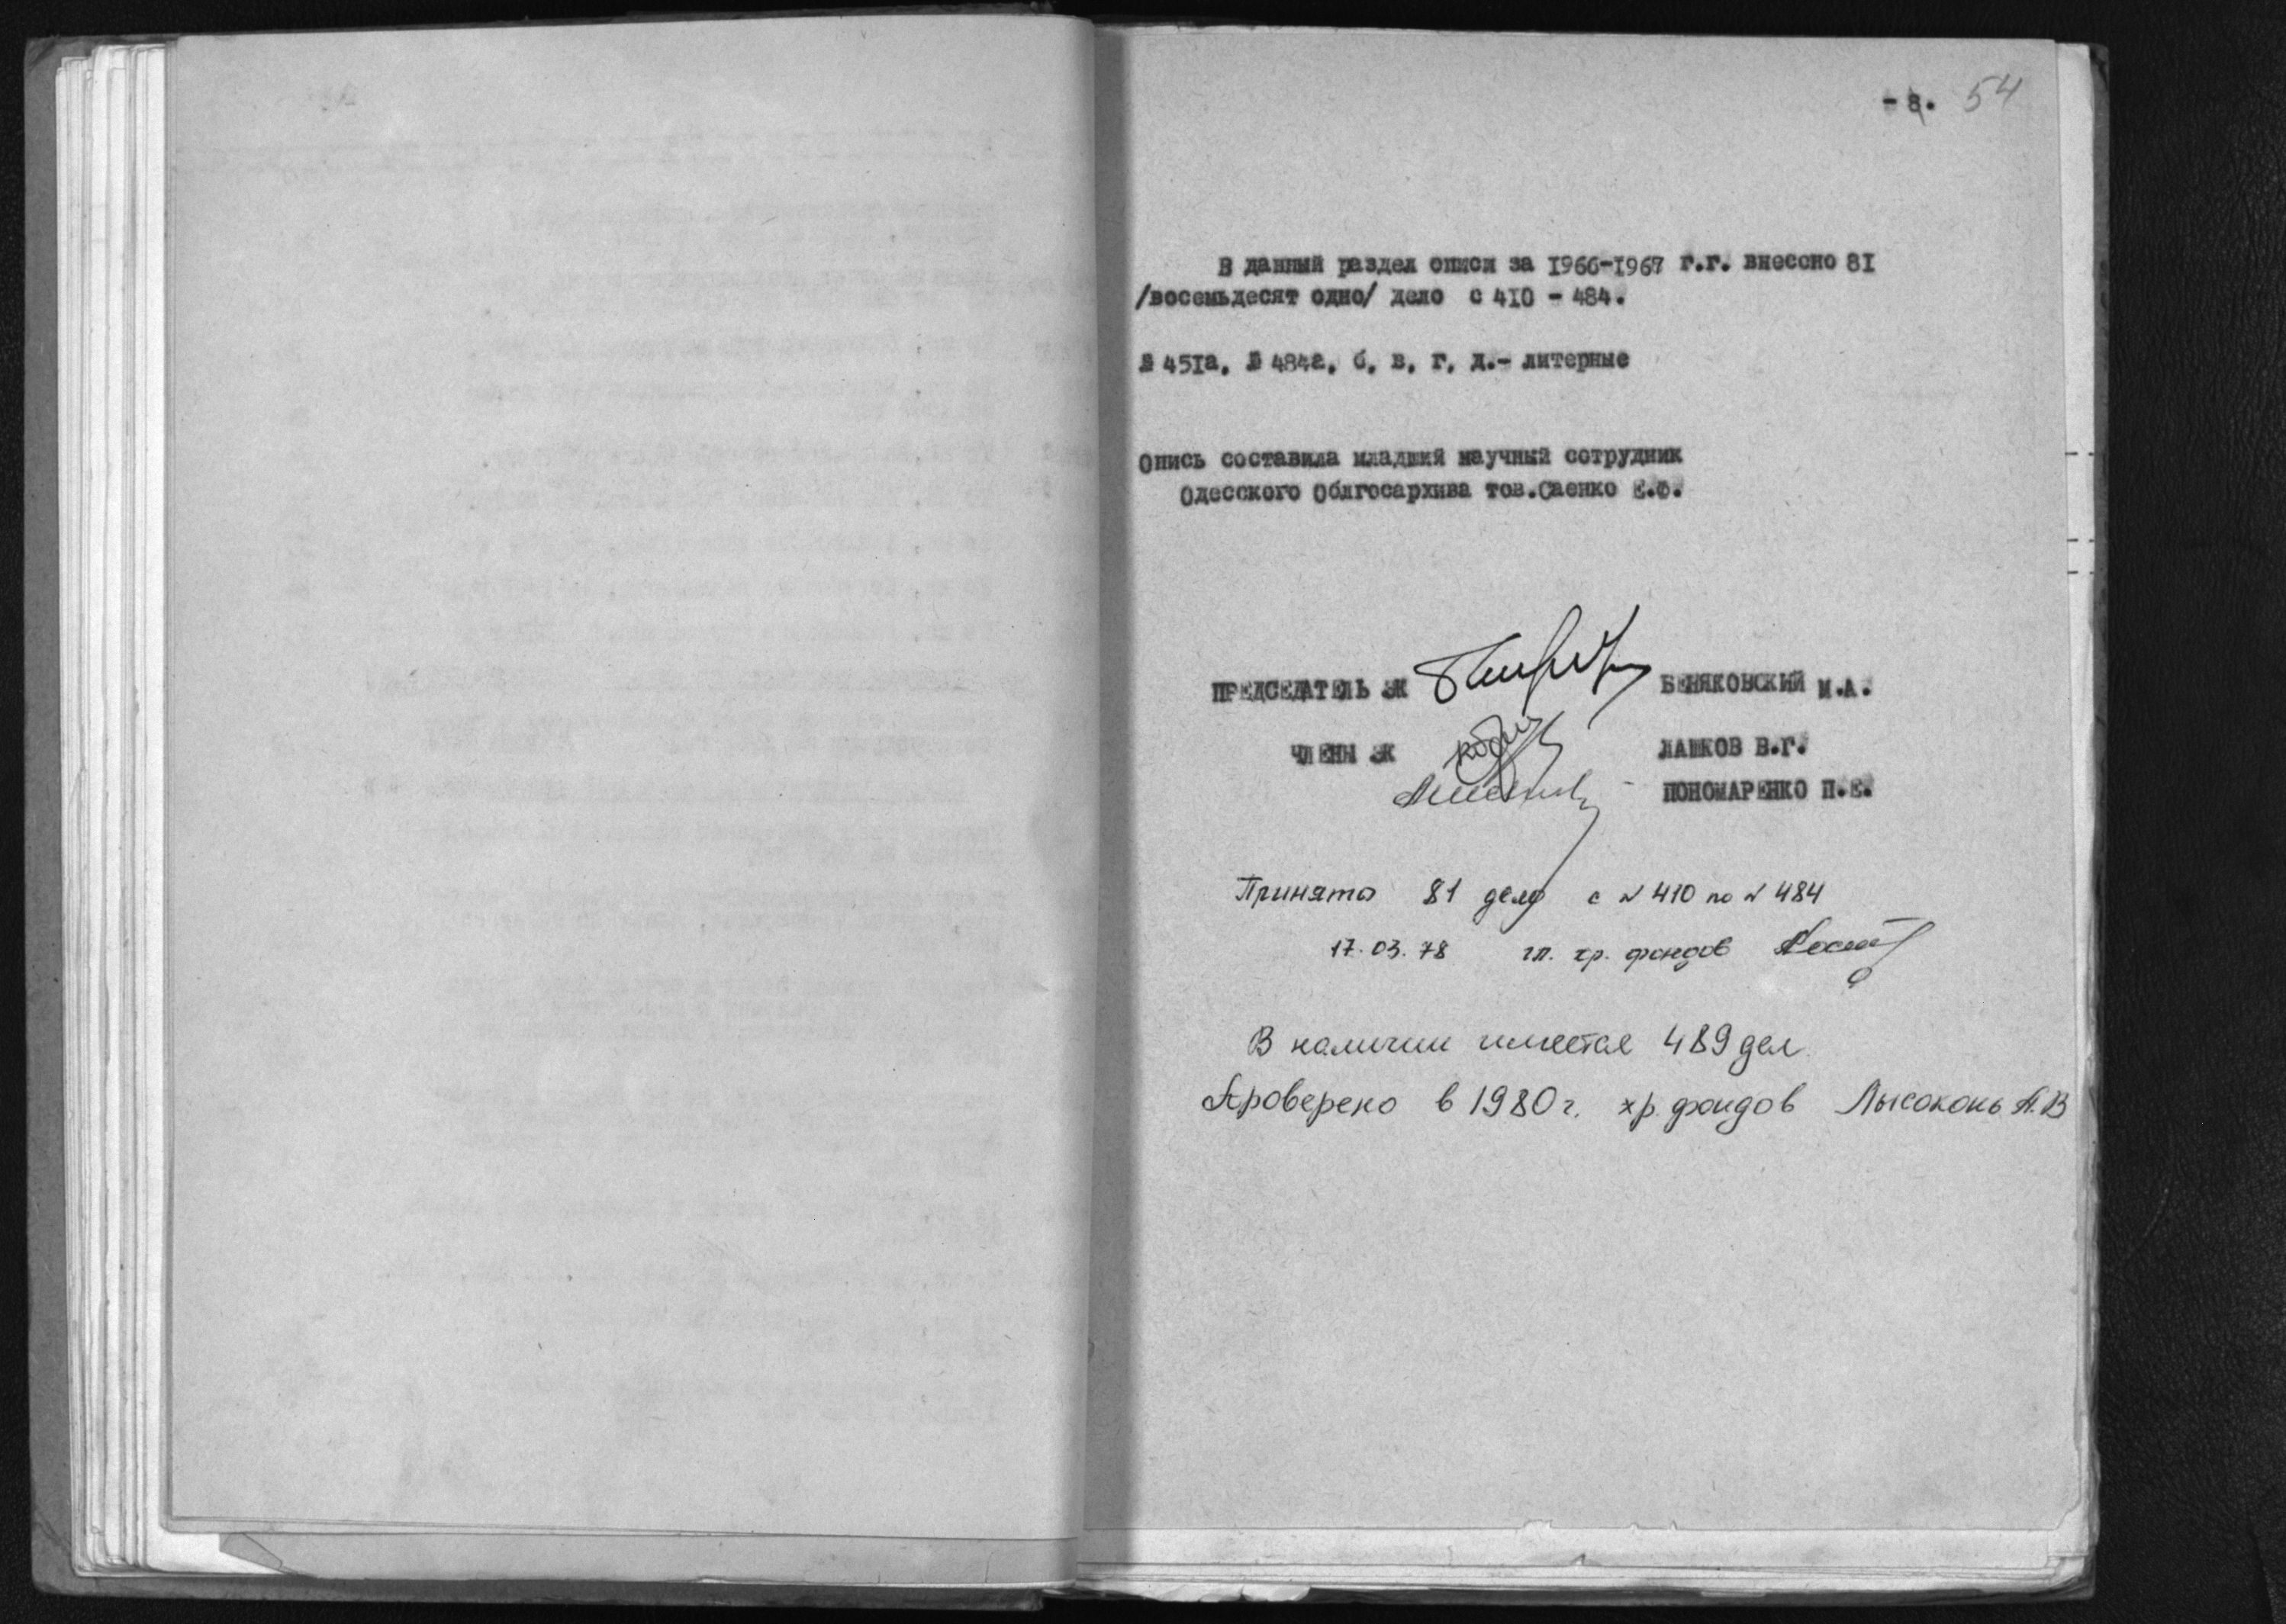 - 8. 54
В данный раздел описи за 1966-1967 г.г. внесено 81
/восемьдесят одно/ дело с 410 - 484.
№ 451а, № 484а, б, в, г, д.- литерные
Опись составила младший научный сотрудник
Одесского Облгосархива тов.Саенко Е.Ф.
ПРЕДСЕДАТЕЛЬ ЭК БЕНЯКОВСКИЙ М.А.
ЧЛЕНЫ ЭК ЛАШКОВ В.Г.
ПОНОМАРЕНКО П.Е.
Принято 81 дело с № 410 по № 484
17.03.78 гл. хр. фондов
В наличии имеется 489 дел.
Проверено в 1980 г. хр. фондов Лысоконь А.В